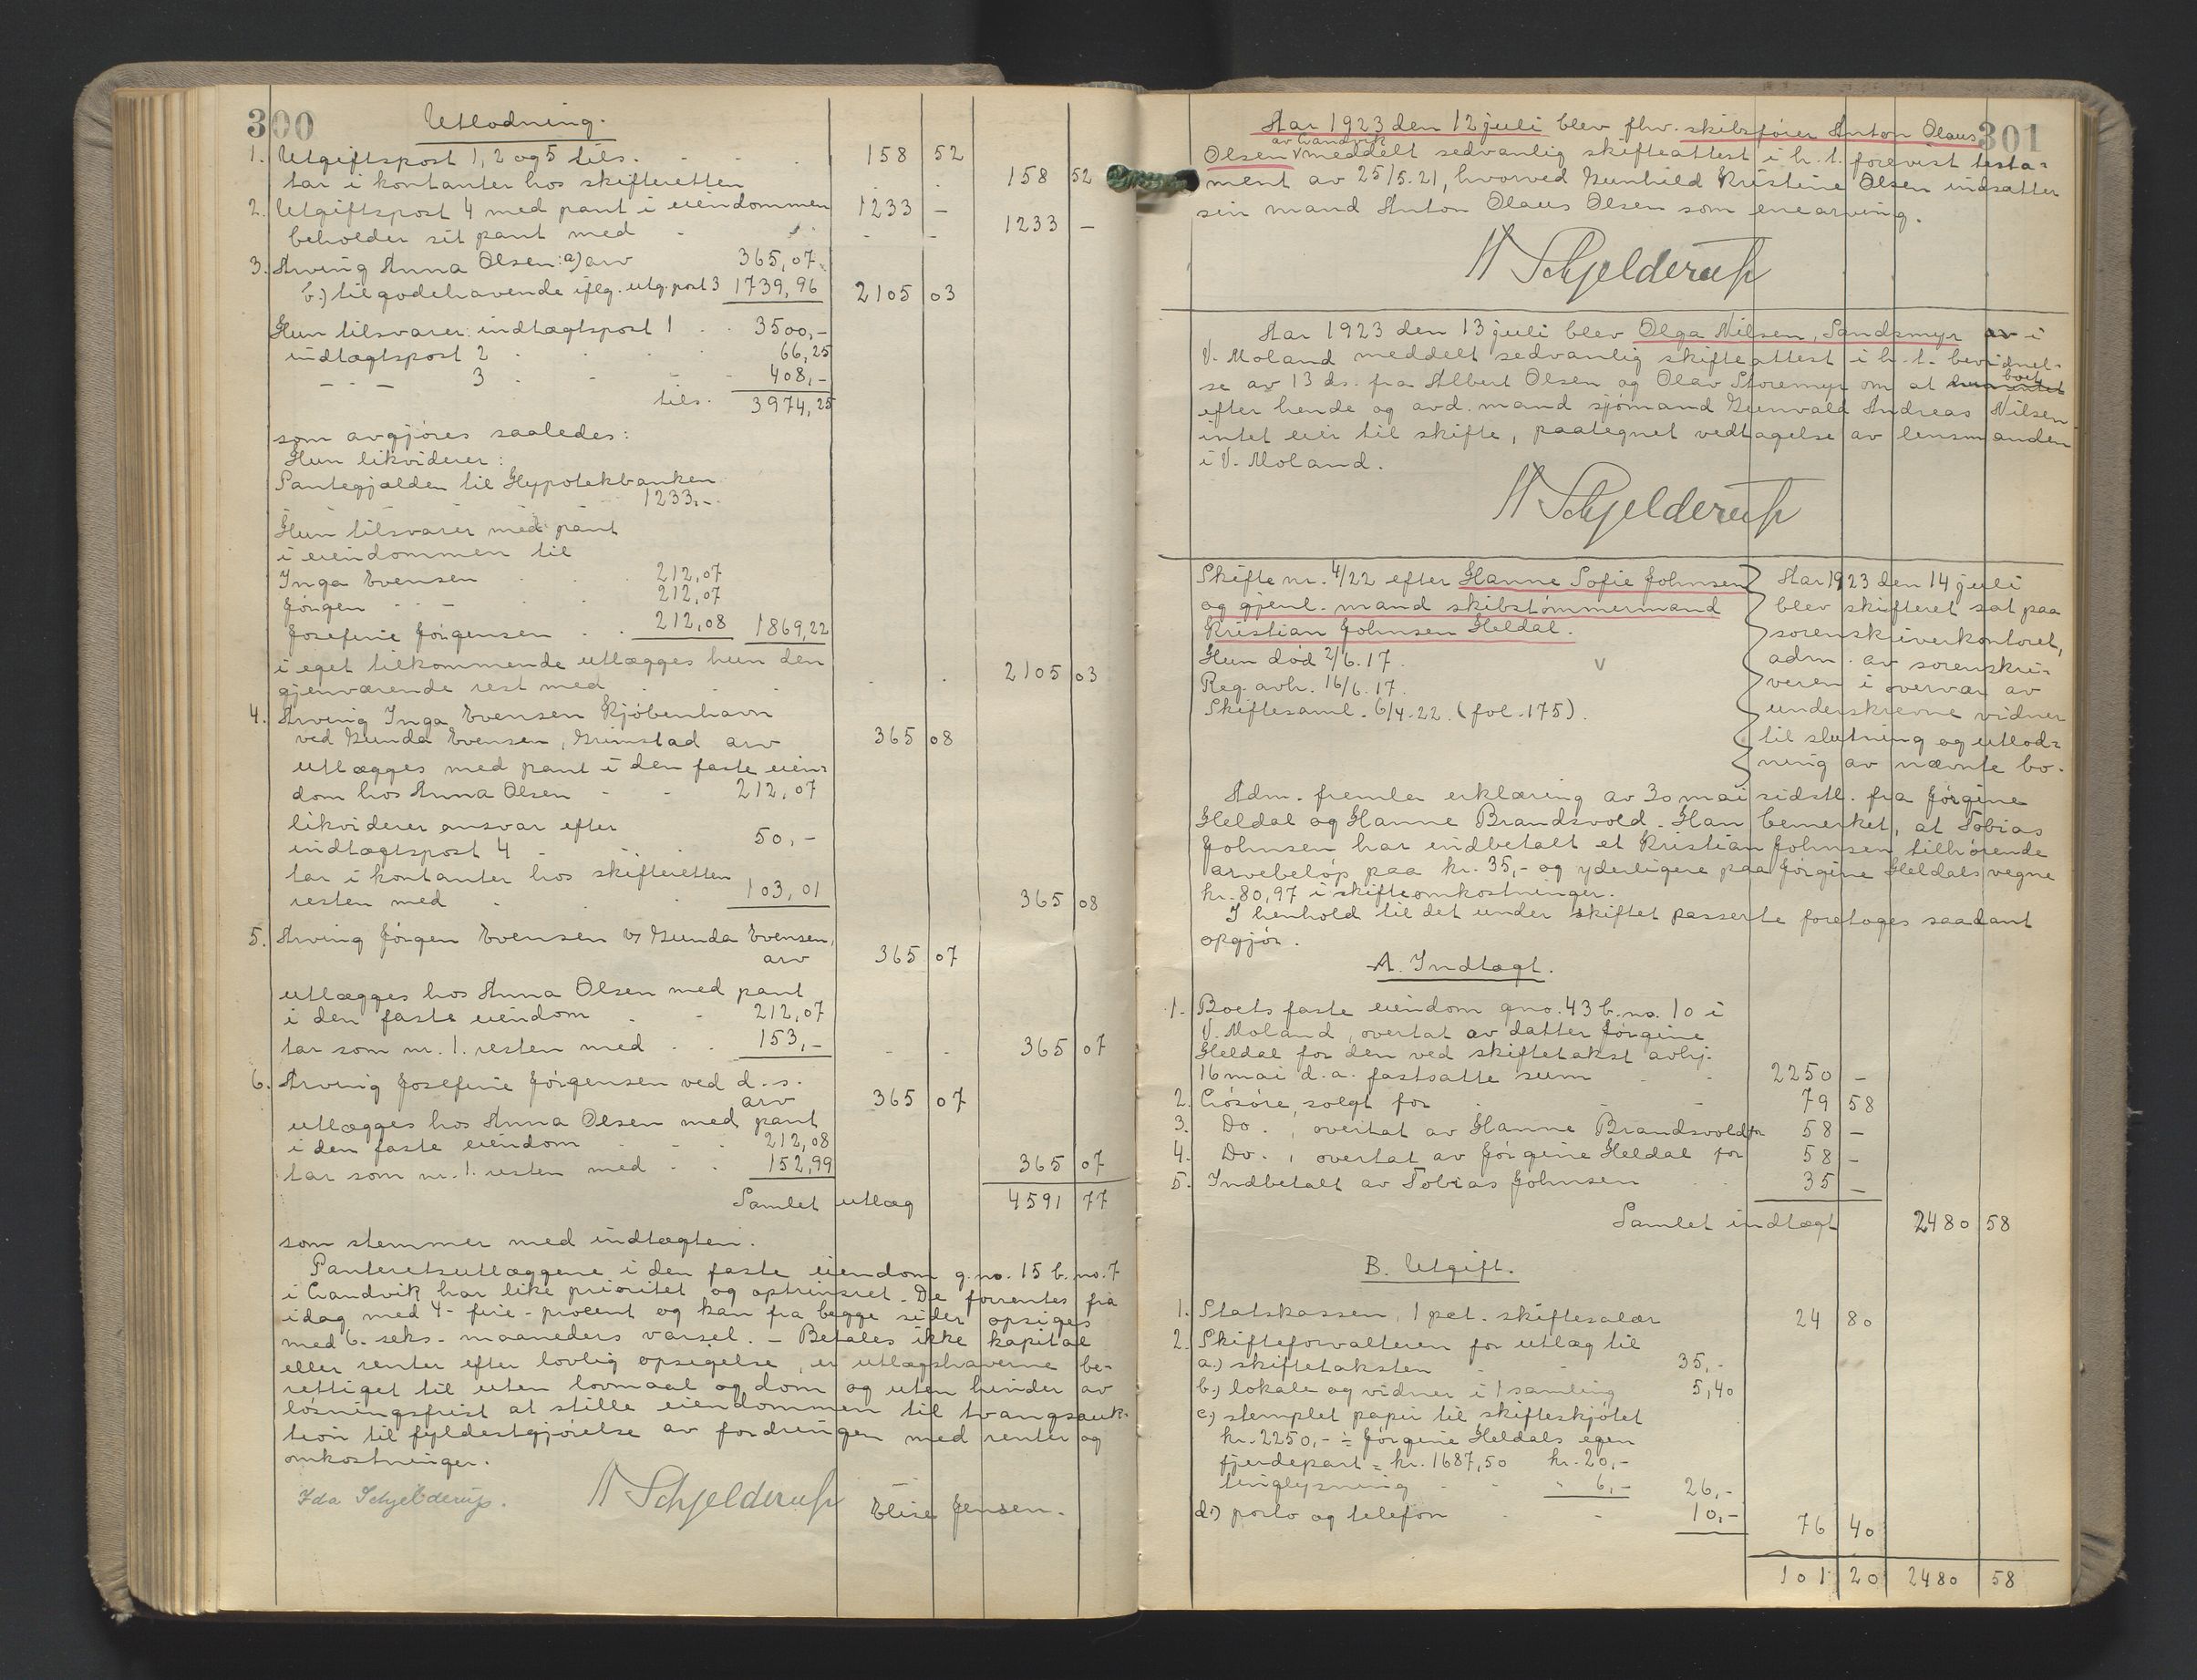 300
Utlodning.
1. Utgiftspost 1, 2 og 5 tils. 158 52
tar i kontanter hos skifteretten 158 52
2. Utgiftspost 4 med pant i eiendommen 1233 –
beholder sit pant med 1233 –
3. Arving Anna Olsen: a) arv 365,07
b.) tilgodehavende iflg. utg. post 3 1739,96 2105 03
Hun tilsvarer: indtægtspost 1 3500,-
indtægtspost 2 66,25
– " – 3 408,-
tils. 3974,25
som avgjøres saaledes:
Hun likviderer:
Pantegjælden til Hypotekbanken
1233,-
Hun tilsvarer med pant
i eiendommen til
Inga Evensen 212,07
Jørgen – " – 212,07
Josefine Jørgensen 212,08 1869,22
i eget tilkommende utlægges hun den
gjenværende rest med 2105 03
4. Arving Inga Evensen Kjøbenhavn
ved Gunda Evensen, Grimstad arv 365 08
utlægges med pant i den faste eien-
dom hos Anna Olsen 212,07
likviderer ansvar efter
indtægtspost 4 50,-
tar i kontanter hos skifteretten
resten med 103,01 365 08
5. Arving Jørgen Evensen v/ Gunda Evensen,
arv 365 07
utlægges hos Anna Olsen med pant
i den faste eiendom 212,07
tar som nr. 1. resten med 153,- 365 07
6. Arving Josefine Jørgensen ved d.s.
arv 365 07
utlægges hos Anna Olsen med pant
i den faste eiendom 212,08
tar som nr. 1. resten med 152,99 365 07
Samlet utlæg 4591 77
som stemmer med indtægten.
Panteretsutlæggene i den faste eiendom g.no. 15 b.no. 7
i Sandvik har like prioritet og optrinsret. De forrentes fra
idag med 4 - fire - procent og kan fra begge sider opsiges
med 6 - seks - maaneders varsel. – Betales ikke kapital
eller renter efter lovlig opsigelse, er utlægshaverne be-
rettiget til uten lovmaal og dom og uten hinder av
løsningsfrist at stille eiendommen til tvangsauk-
tion til fyldestgjørelse av fordringen med renter og
omkostninger.
Ida Schjelderup. H Schjelderup Elise Jensen.
301
Aar 1923 den 12 juli blev fhv. skibsfører Anton Olaus
av Sandvik
Olsen v meddelt sedvanlig skifteattest i h.t. forevist testa-
ment av 25/5.21, hvorved Gunhild Kristine Olsen indsætter
sin mand Anton Olaus Olsen som enearving.
H Schjelderup
Aar 1923 den 13 juli blev Olga Nilsen, Sandsmyr av i
V. Moland meddelt sedvanlig skifteattest i h.t. bevidnel-
se av 13 ds. fra Albert Olsen og Olav Storemyr om at boet
efter hende og avd. mand sjømand Gunvald Andreas Nilsen
intet eier til skifte, paategnet vedtagelse av lensmanden
i V. Moland.
H Schjelderup
Skifte nr. 4/22 efter Hanne Sofie Johnsen
og gjenl. mand skibstømmermand
Kristian Johnsen Heldal.
Hun død 2/6.17. v
Reg. avh. 16/6.17.
Skiftesaml. 6/4-22. (fol. 175).
Aar 1923 den 14 juli
blev skifteret sat paa
sorenskriverkontoret,
adm. av sorenskri-
veren i overvær av
underskrevne vidner
til slutning og utlod-
ning av nævnte bo.
Adm. fremla erklæring av 30 mai sidstl. fra Jørgine
Heldal og Hanne Brandsvold. Han bemerket, at Tobias
Johnsen har indbetalt et Kristian Johnsen tilhørende
arvebeløp paa kr. 35,- og yderligere paa Jørgine Heldals vegne
kr. 80,97 i skifteomkostninger.
I henhold til det under skiftet passerte foretoges saadant
opgjør.
A. Indtægt.
1. Boets faste eiendom gno. 43 b.no. 10 i
V. Moland, overtat av datter Jørgine
Heldal for den ved skiftetakst avhj.
16 mai d.a. fastsatte sum 2250 –
2. Løsøre, solgt for 79 58
3. Do., overtat av Hanne Brandsvold for 58 –
4. Do., overtat av Jørgine Heldal for 58 –
5. Indbetalt av Tobias Johnsen 35 –
Samlet indtægt 2480 58
B. Utgift.
1. Statskassen, 1 pct. skiftesalær 24 80
2. Skifteforvalteren for utlæg til
a.) skiftetaksten 35,-
b.) lokale og vidner i 1 samling 5,40
c.) stemplet papir til skifteskjøtet
kr. 2250,- ÷ Jørgine Heldals egen
fjerdepart = kr. 1687,50 kr. 20,-
tinglysning " 6,- 26,-
d.) porto og telefon 10,- 76 40
101 20 2480 58